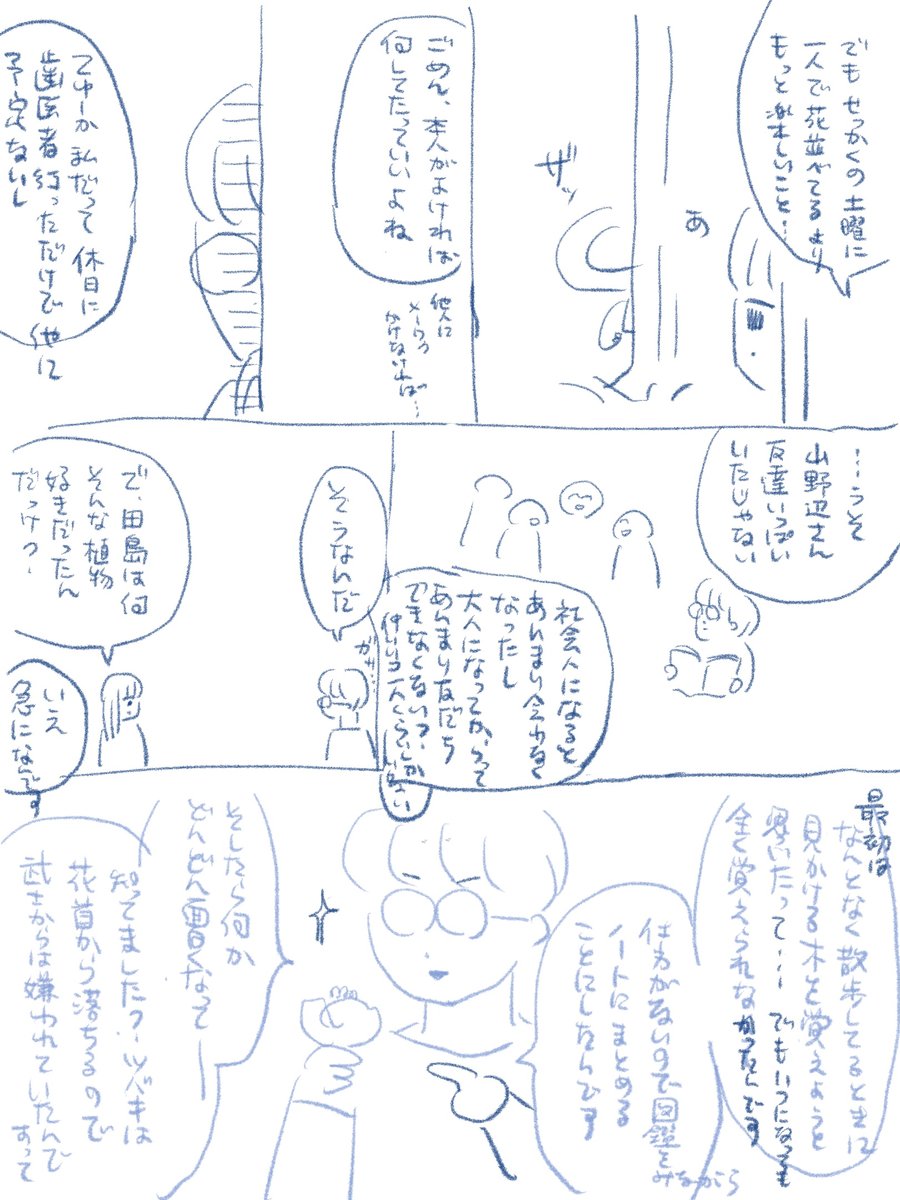 でもせっかくの土曜に
一人で花並べてるより
もっと楽しいこと…
あ
ザッ
ごめん、本人がよければ
何してたっていいよね
他人に
メーワク
かけなければ…
てゆーか私だって休日に
歯医者行っただけで他に
予定ないし
…うそ
山野辺さん
友達いっぱい
いたじゃない
社会人になると
あんまり会わなく
なったし
大人になってからって
あんまり友だち
できなくない?
仲いい二人くらいしかいない
そうなんだ
ガサ…
で、田島は何
そんな植物
好きだったん
だっけ?
いえ
急になんです
最初は
なんとなく散歩してるときに
見かける木を覚えようと
思いたって… でもいつになっても
全く覚えられなかったんです
仕方がないので図鑑を
みながら
ノートにまとめる
ことにしたんです
そしたら何か
どんどん面白くなって
知ってました?ツバキは
花首から落ちるので
武士からは嫌われていたんで
すって